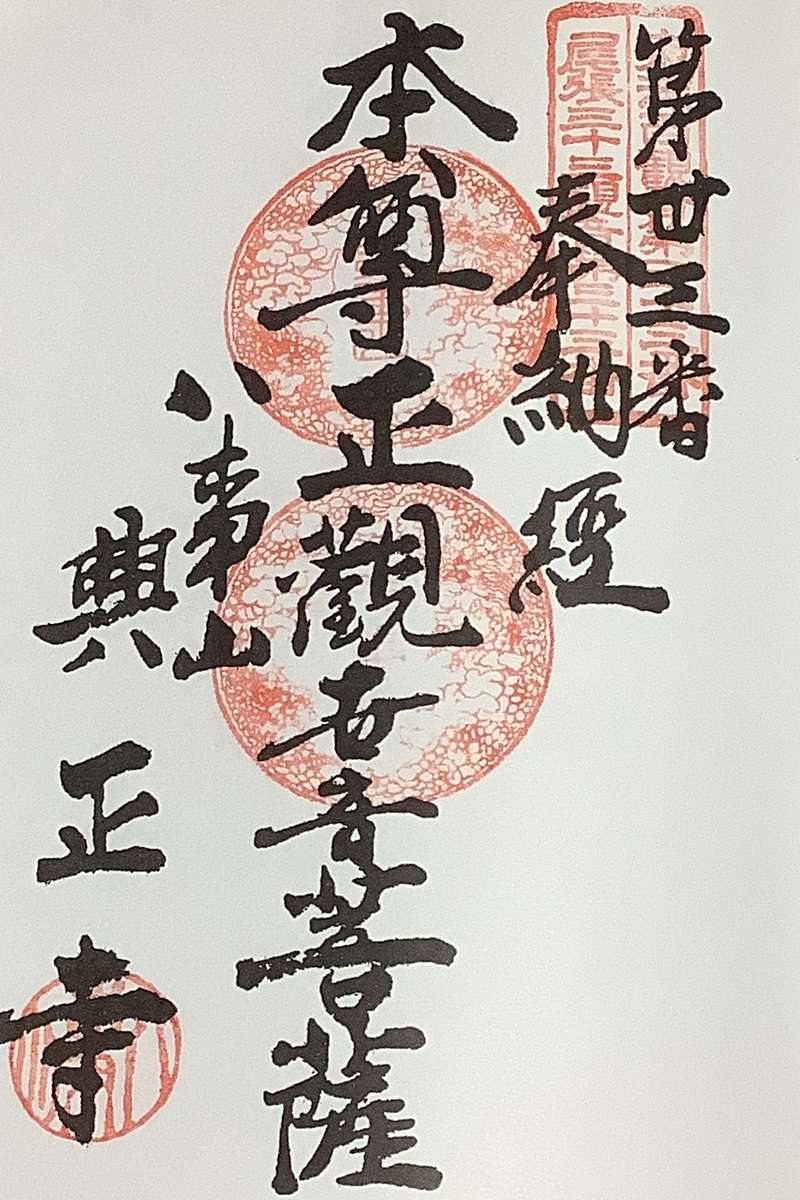 第廿三番
奉納經
本尊正觀世音菩薩
八事山
興正寺
尾張三十三観音第三十三番